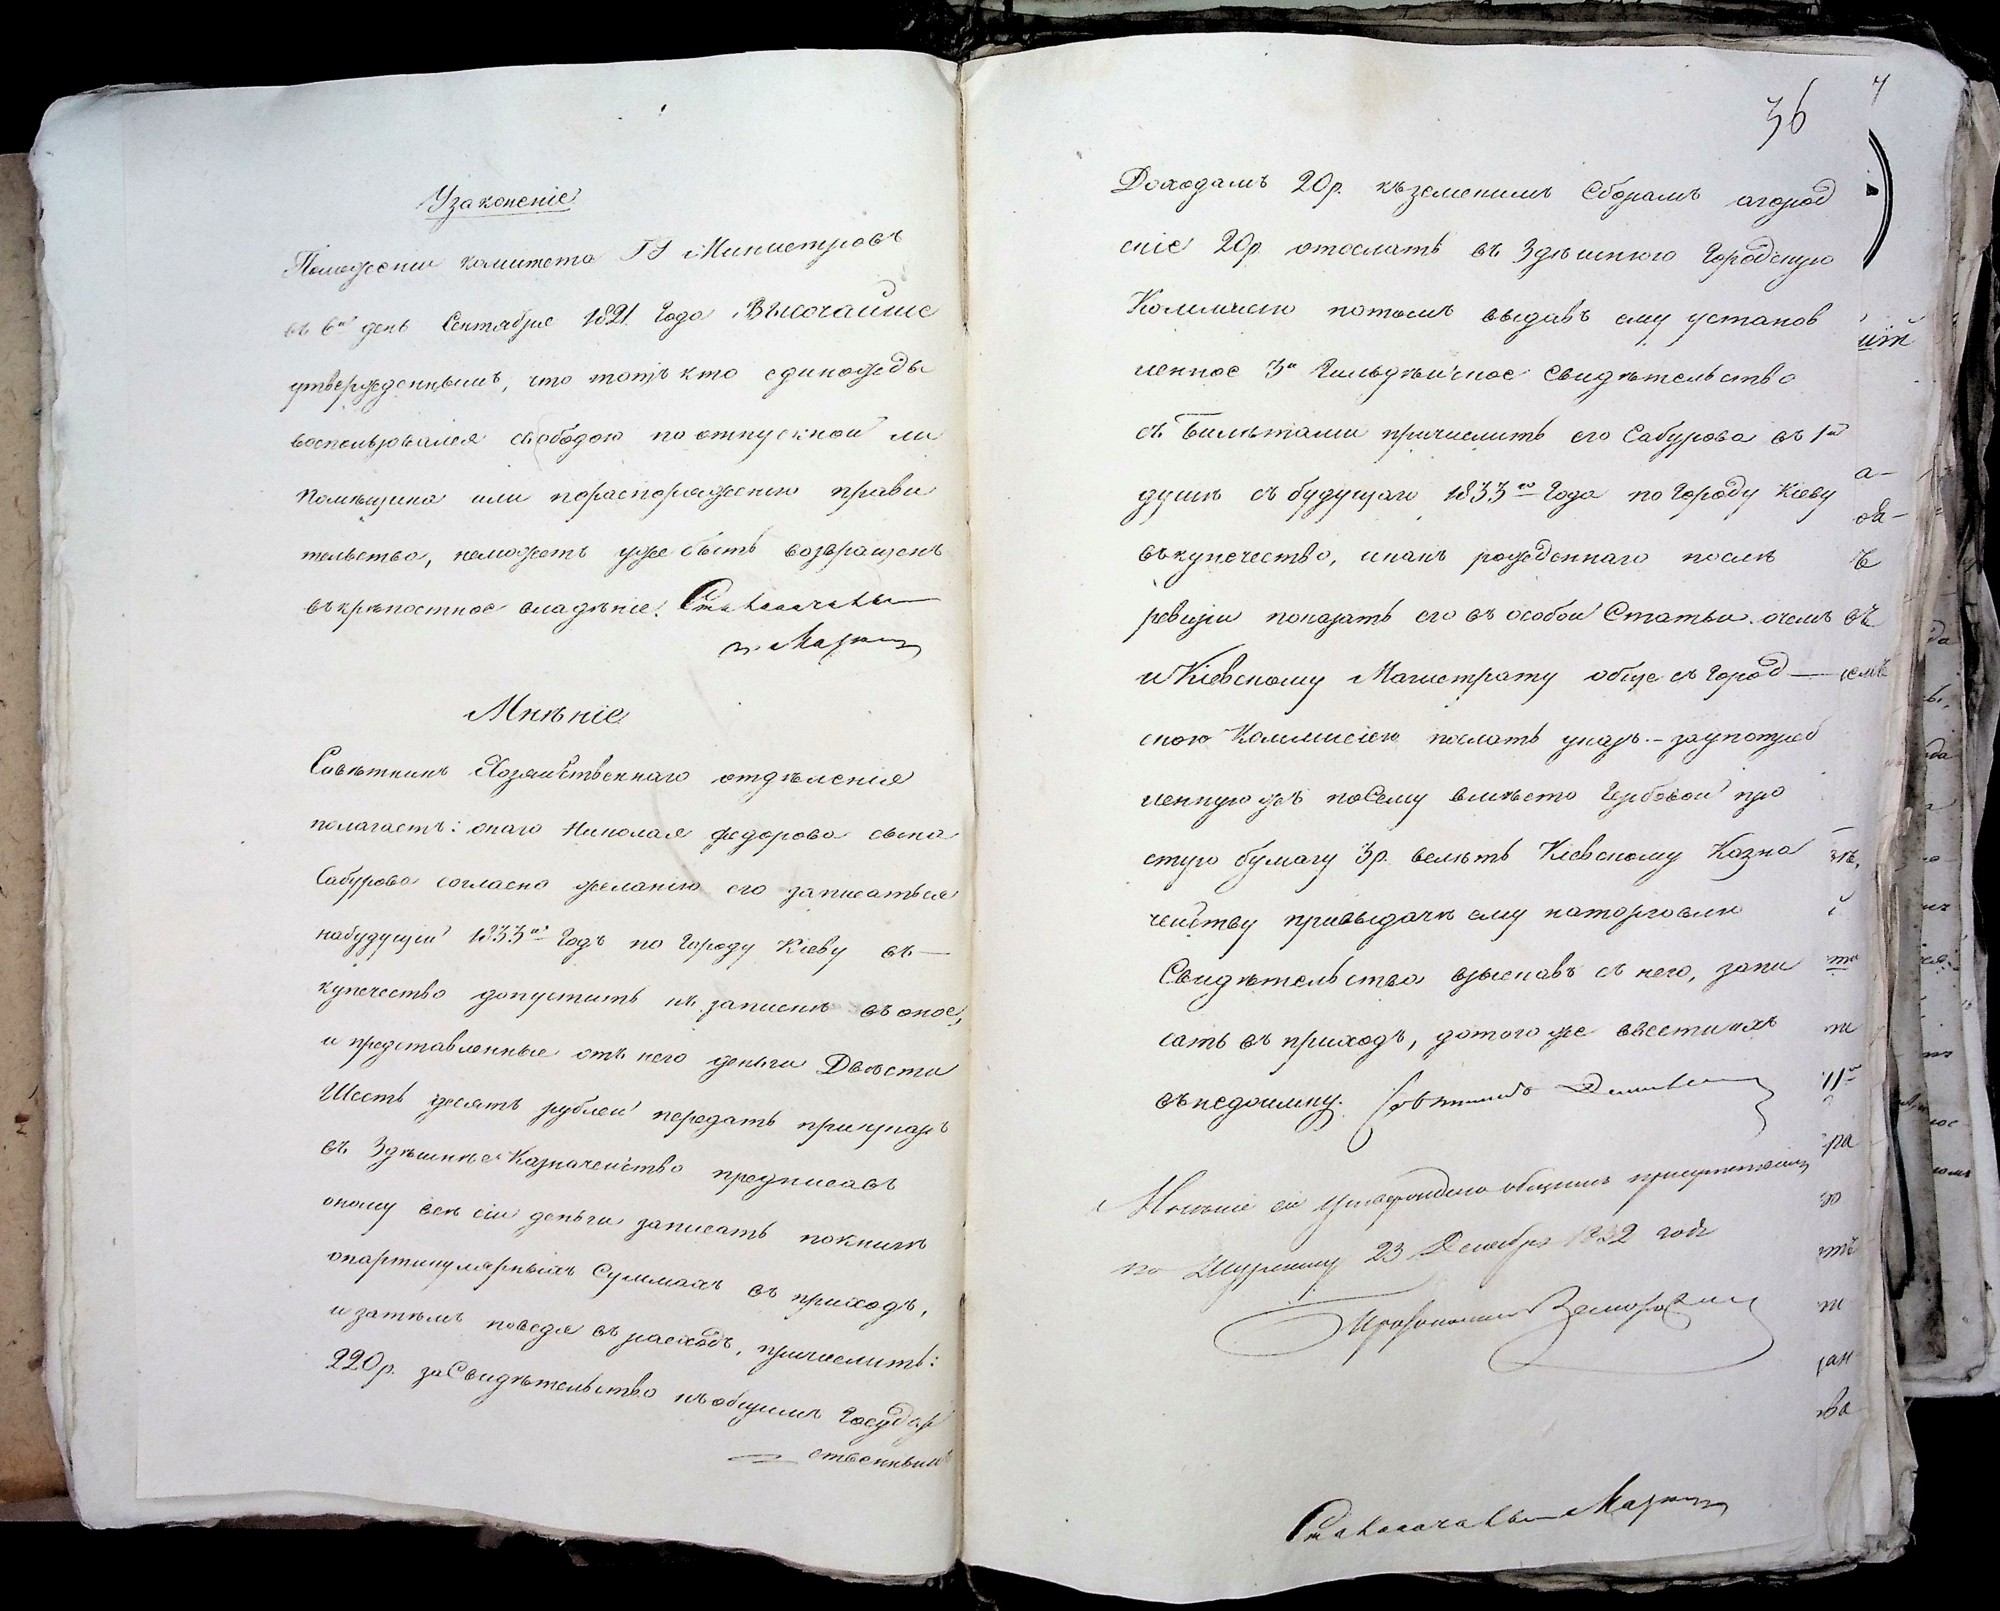 Узаконеніе
Положеніи комитета ГГ Министровъ
въ 6й день Сентября 1821 Года Высочайше
утвержденнымъ, что тотъ кто единожды
воспользовался свободою по отпускной ли
помѣщика или пораспоряженію прави
тельства, неможетъ уже быть возвращенъ
въ крѣпостное владѣніе. Столоначальн
Мнѣніе
Совѣтникъ Хозяйственнаго отдѣленія
полагаетъ: онаго Николая Федорова сына
Сабурова согласно желанію его записаться
набудущій 1833й Годъ по Городу Кіеву въ—
купечество допустить къ запискѣ въ оное,
и представленные отъ него деньги Двѣсти
Шесть десятъ рублей передать приуказѣ
въ Здѣшнѣе Казначейство предписавъ
оному всѣ сіи деньги записать покнигѣ
опартикулярныхъ Суммахъ въ приходъ,
и затѣмъ поведя въ расходъ, причислить:
220 р. за Свидѣтельство къ общимъ Государ
ственнымъ
36
Доходамъ 20 р. къ земскимъ Сборамъ агород
скіе 20 р. отослать въ Здѣшнюю Городскую
Коммисію потомъ выдавъ ему установ
ленное 3й Гильдѣйское Свидѣтельство
съ билѣтами причислить его Сабурова въ 1й
душѣ съ будущаго 1833го Года по Городу Кіеву
въ купечество, икакъ рожденнаго послѣ
ревизіи показать его въ особой Статьи. очемъ
и Кіевскому Магистрату обще съ Город—
скою Коммисіею послать указъ.— заупотреб
ленную жъ посему вмѣсто Гербовой про
стую бумагу 3 р. велѣть Кіевскому Казна
чейству привыдачѣ ему наторговлю
Свидѣтельства взыскавъ съ него, запи
сать въ приходъ, дотого же ввести ихъ
въ недоимку. Совѣтникъ
Мнѣніе сіе утверждено общимъ присутствіемъ
по журналу 23 Декабря 1832 года
Столоначальн